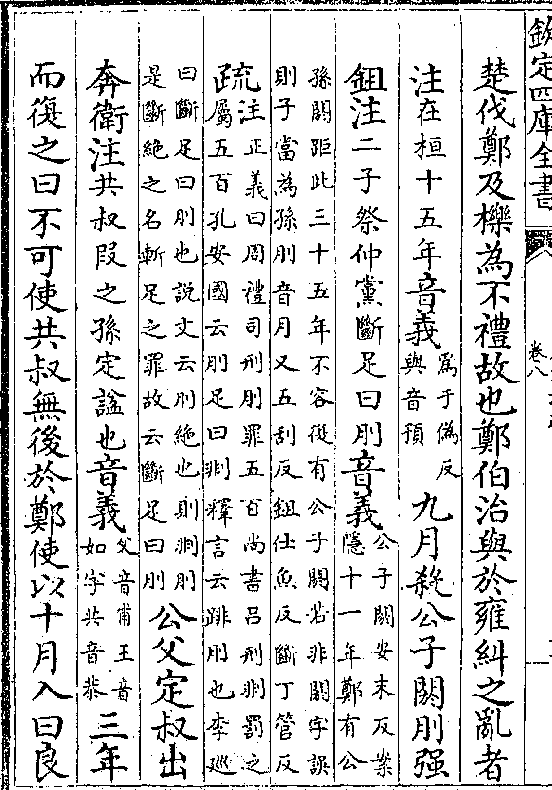 欽定四庫全書
卷八
楚伐鄭及櫟為不禮故也鄭伯治與於雍糾之亂者
注在桓十五年音義
為于偽反
與音預
九月殺公子閼刖强
鉏注二子祭仲黨斷足曰刖音義
公子閼安末反案
隱十一年鄭有公
孫閼距此三十五年不容復有公子閼若非閼字誤
則子當為孫刖音月又五刮反鉏仕魚反斷丁管反
疏
注正義曰周禮司刑刖罪五百尚書呂刑剕罰之
屬五百孔安國云刖足曰剕釋言云䠊刖也李廵
曰斷足曰刖也說文云刖絶也則剕刖
是斷絶之名斬足之罪故云斷足曰刖
公父定叔出
奔衛注共叔段之孫定諡也音義
父音甫王音
如字共音恭
三年
而復之曰不可使共叔無後於鄭使以十月入曰良